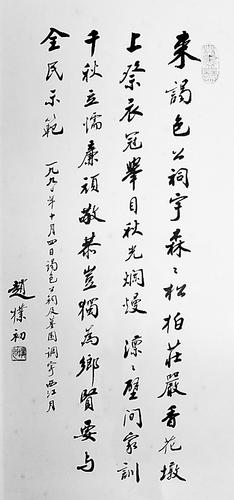 来謁包公祠宇森〻松柏莊嚴香花墩
上祭衣冠舉目秋光爛熳 凛〻壁間家訓
千秋立懦廉頑敬恭豈獨為鄉賢要与
全民示範
一九九〇年十月四日謁包公祠及墓園 調寄西江月
趙樸初